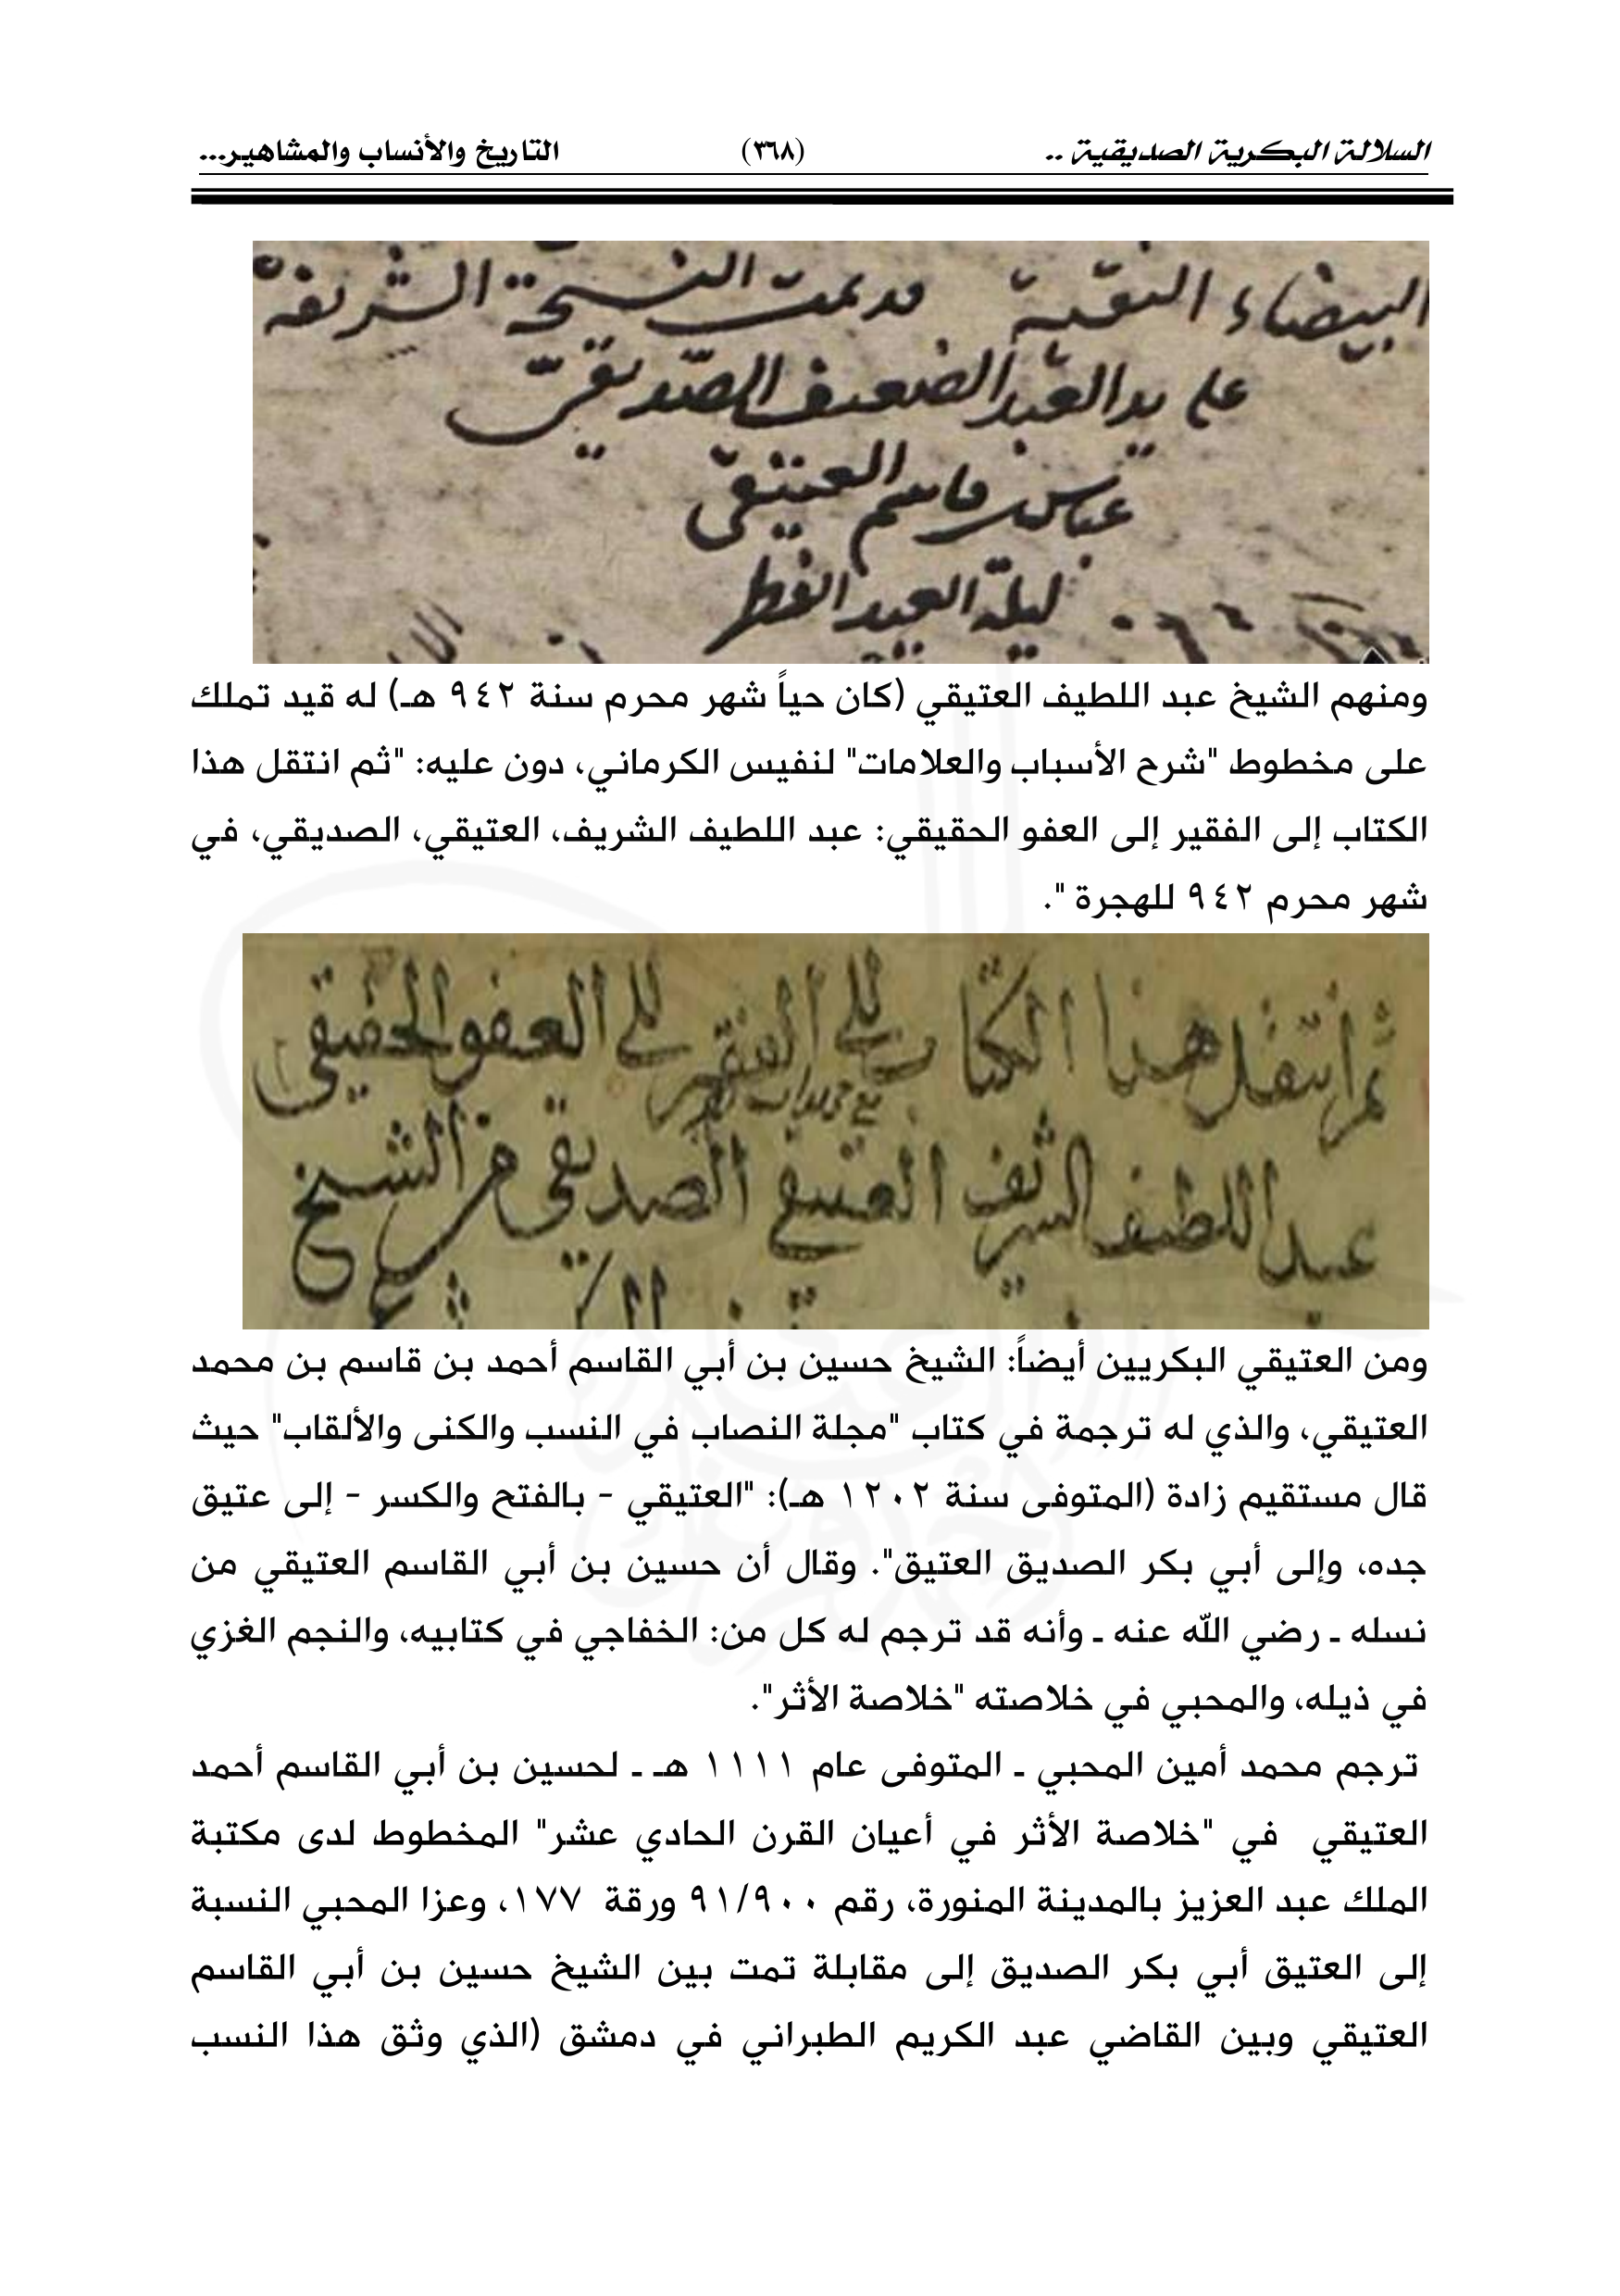 السلالة البكرية الصديقية .. (٣٦٨) التاريخ والأنساب والمشاهير...
البيضاء النقية قد تمت النسخة الشريفة
على يد العبد الضعيف الصديقي
عباس بن قاسم العتيقي
ليلة العيد الفطر
ومنهم الشيخ عبد اللطيف العتيقي (كان حياً شهر محرم سنة ٩٤٢ هـ) له قيد تملك
على مخطوط "شرح الأسباب والعلامات" لنفيس الكرماني، دون عليه: "ثم انتقل هذا
الكتاب إلى الفقير إلى العفو الحقيقي: عبد اللطيف الشريف، العتيقي، الصديقي، في
شهر محرم ٩٤٢ للهجرة ".
ثم انتقل هذا الكتاب إلى الفقير إلى العفو الحقيقي
عبد اللطيف الشريف العتيقي الصديقي من الشيخ
ومن العتيقي البكريين أيضاً: الشيخ حسين بن أبي القاسم أحمد بن قاسم بن محمد
العتيقي، والذي له ترجمة في كتاب "مجلة النصاب في النسب والكنى والألقاب" حيث
قال مستقيم زادة (المتوفى سنة ١٢٠٢ هـ): "العتيقي - بالفتح والكسر - إلى عتيق
جده، وإلى أبي بكر الصديق العتيق". وقال أن حسين بن أبي القاسم العتيقي من
نسله ـ رضي الله عنه ـ وأنه قد ترجم له كل من: الخفاجي في كتابيه، والنجم الغزي
في ذيله، والمحبي في خلاصته "خلاصة الأثر".
ترجم محمد أمين المحبي ـ المتوفى عام ١١١١ هـ ـ لحسين بن أبي القاسم أحمد
العتيقي في "خلاصة الأثر في أعيان القرن الحادي عشر" المخطوط لدى مكتبة
الملك عبد العزيز بالمدينة المنورة، رقم ٩١/٩٠٠ ورقة ١٧٧، وعزا المحبي النسبة
إلى العتيق أبي بكر الصديق إلى مقابلة تمت بين الشيخ حسين بن أبي القاسم
العتيقي وبين القاضي عبد الكريم الطبراني في دمشق (الذي وثق هذا النسب